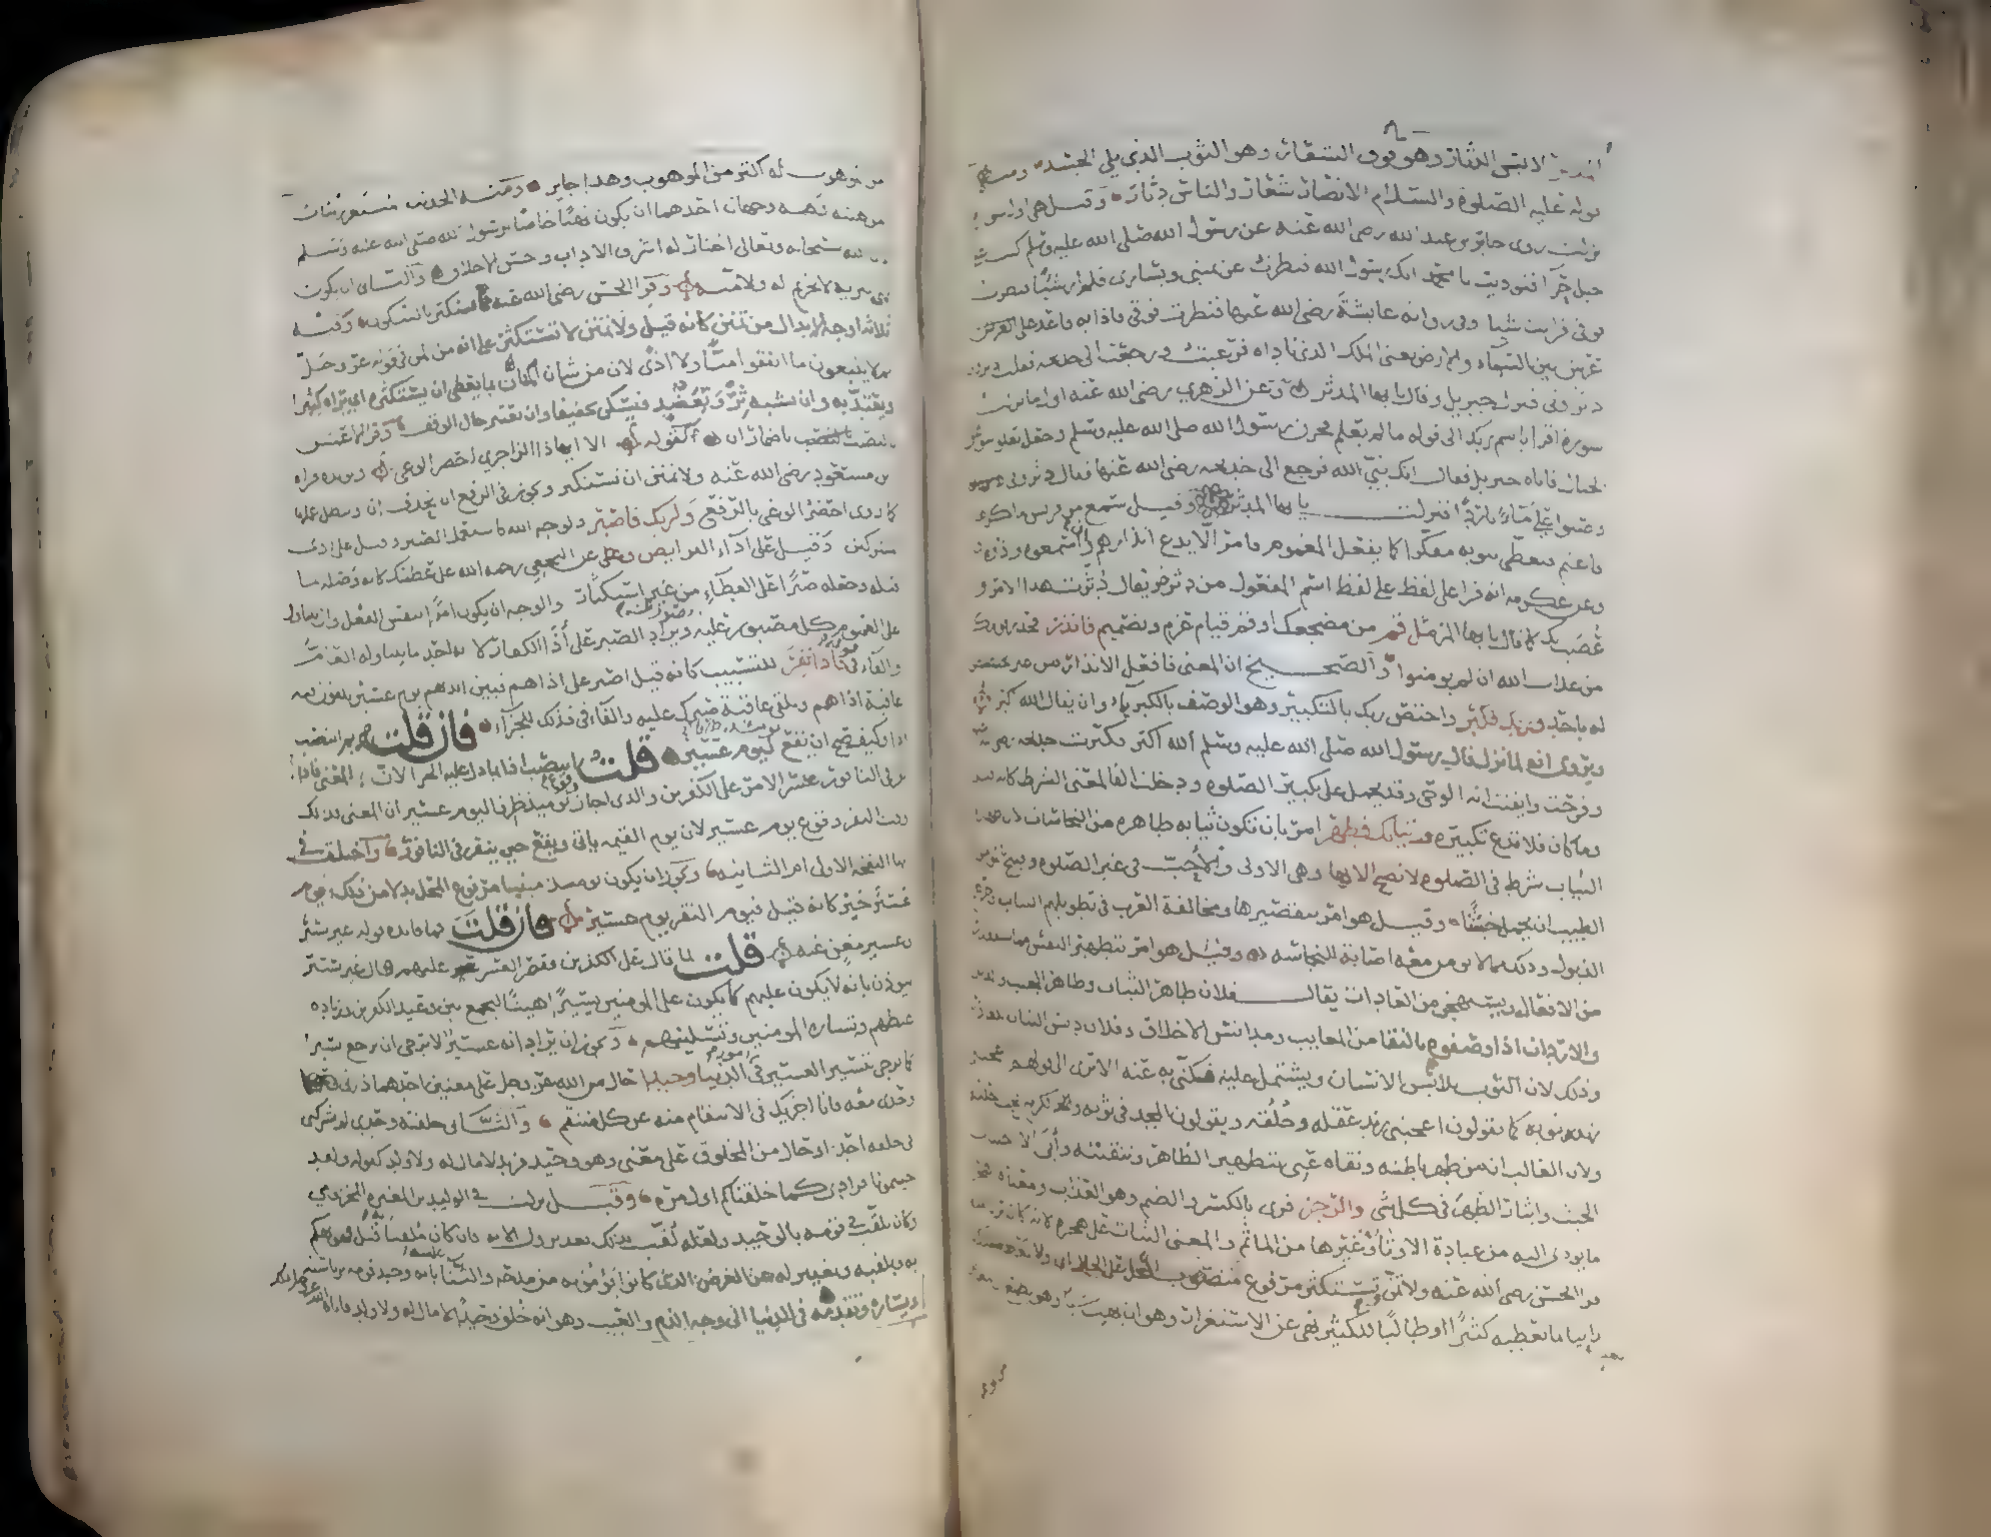 المدثر لابس الدثار وهو فوق الشعار وهو الثوب الذي يلي الجسد ومنه
قوله عليه الصلوة والسلام الانصار شعار والناس دثار وقيل هي اول سورة
نزلت روى جابر بن عبد الله رضي الله عنه عن رسول الله صلى الله عليه وسلم كنت على
جبل حرآ فنوديت يا محمد انك رسول الله فنظرت عن يميني ويساري فلم ار شيئا فنظرت
فوقي فرايت شيا وفي رواية عايشة رضي الله عنها فنظرت فوقي فاذا به قاعد على العرش
عرش بين السماء والارض يعني الملك الذي ناداه فرعبت ورجعت الى خديجه فقلت دثروني
دثروني فنزل جبريل وقال يا يها المدثر وعن الزهري رضي الله عنه اول ما نزلت
سورة اقرا باسم ربك الى قوله ما لم يعلم فحزن رسول الله صلى الله عليه وسلم وجعل يعلو شواهق
الجبال فاتاه جبريل فقال انك نبي الله فرجع الى خديجه رضي الله عنها فقال دثروني
وصبوا علي مآءً باردًا فنزلت يا يها المدثر وقيل سمع من قريش ما كرهه
فاغتم فتغطى بثوبه مفكرا كما يفعل المغموم فامر الا يدع انذارهم وان اسمعوه واذوه
وعن عكرمه انه قرا على لفظ اسم المفعول من دثره يقال دثرت هذا الامر و
عصب بك كما قال يا يها المزمل قم من مضجعك او قم قيام عزم وتصميم فانذر فحذر قومك
من عذاب الله ان لم يومنوا والصحيح ان المعنى فافعل الانذار من غير تخصيص
له باحد وربك فكبر واختص ربك بالتكبير وهو الوصف بالكبرياء وان يقال الله اكبر
ويروى انه لما نزل قال رسول الله صلى الله عليه وسلم الله اكبر فكبرت خديجه
وفرحت وايقنت انه الوحي وقد يحمل على تكبير الصلوه ودخلت الفا لمعنى الشرط كانه قيل
وما كان فلا تدع تكبيره وثيابك فطهر امر بان تكون ثيابه طاهره من النجاسات لان طهارة
الثياب شرط في الصلوه لا تصح الا بها وهي الاولى والاحب في غير الصلوه وقبيح
الطيب ان يحمل خبثا وقيل هو امر بتقصيرها ومخالفة العرب في تطويلهم الثياب وجرهم
الذيول وذلك مما لا يومن معه اصابة النجاسه وقيل هو امر بتطهير النفس مما يستقذر
من الافعال ويستهجن من العادات يقال فلان طاهر الثياب وطاهر الجيب
والاردان اذا وصفوه بالنقا من المعايب ومدانس الاخلاق وفلان دنس الثياب للغادر
وذلك لان الثوب يلابس الانسان ويشتمل عليه فكنى به عنه الا ترى الى قولهم
زيد ثوبه كما يقولون اعجبني زيد عقله وخلقه ويقولون المجد في ثوبه والكرم تحت حلته
ولان الغالب انه من طهر باطنه ونقاه عني بتطهير الظاهر وتنقيته وابى الا اجتناب
الخبث وايثار الطهر في كل شي والرجز قرى بالكسر والضم وهو العذاب ومعناه اهجر
ما يودى اليه من عبادة الاوثان وغيرها من المآثم والمعنى الثبات على هجره لانه كان بريا منه
قرا الحسن رضي الله عنه ولا تمن وتستكثر مرفوع منصوب المحل على الحال اي ولا تعط مستكثرا
رائيا ما تعطيه كثيرًا او طالبًا للكثير نهي عن الاستغزار وهو ان يهب شيا وهو يطمع
من الموهوب له اكثر من الموهوب وهذا جايز ومنه الحديث المستغزر يثاب
من هبته وفيه وجهان احدهما ان يكون نهيًا خاصًا برسول الله صلى الله عليه وسلم
لان الله سبحانه وتعالى اختار له اشرف الاداب وحسن الاخلاق والثاني ان يكون
نهي تنزيه لا تحريم له ولامته وقرا الحسن رضي الله عنه تستكثر بالسكون وفيه
ثلاثه اوجه الابدال من تمنن كانه قيل ولا تمنن لا تستكثر على انه من المن في قوله عز وجل
ثم لا يتبعون ما انفقوا منًّا ولا اذًى لان من شان المنان بما يعطى ان يستكثره اي يراه كثيرا
ويعتد به وان تشبه ثرو بعضد فيسكن تخفيفا وان تعتبر حال الوقف وقرا الاعمش
بالنصب باضمار ان كقوله الا ايهاذا الزاجري احضر الوغى ويويده قراة
بن مسعود رضي الله عنه ولا تمنن ان تستكثر ويجوز في الرفع ان تحذف ان ويبطل عملها
كما روى احضر الوغى بالرفع ولربك فاصبر ولوجه الله فاستعمل الصبر وقيل على اذى
المشركين وقيل على اداء الفرايض وعن النخعي رحمه الله على عطيتك كانه وصله بما
قبله وجعله صبرًا على العطآء من غير استكثار والوجه ان يكون امرًا بنفس الفعل وان يتناول
على العموم كل مصبور عليه ويراد الصبر على اذى الكفار لانه احد ما يتناوله العام
والفآء في فاذا نقر للتسبيب كانه قيل اصبر على اذاهم فبين ايديهم يوم عسير يلقون فيه
عاقبة اذاهم وتلقى عاقبة صبرك عليه والفآء في فذلك للجزآء فان قلت بم انتصب
اذا وكيف صح ان يقع يوميذ ظرفا ليوم عسير قلت انتصب اذا بما دل عليه الجزا لان المعنى فاذا
نقر في الناقور عسر الامر على الكافرين والذي اجاز وقوع يوميذ ظرفا ليوم عسير ان المعنى فذلك
وقت النقر وقوع يوم عسير لان يوم القيمه ياتي ويقع حين ينقر في الناقور واختلف في
انها النفخه الاولى ام الثانيه ويجوز ان يكون يوميذ مبنيا مرفوع المحل بدلا من ذلك ويوم
عسير خبر كانه قيل فيوم النقر يوم عسير فان قلت فما فايدة قوله غير يسير
وعسير مغن عنه قلت لما قال على الكفرين فقصر العسر عليهم قال غير يسير
ليوذن بانه لا يكون عليهم كما يكون على المومنين يسيرًا هينًا ليجمع بين وعيد الكافرين وزيادة
غيظهم وبشارة المومنين وتسليتهم ويجوز ان يراد انه عسير لا يرجى ان يرجع يسيرا
كما يرجى تيسير العسير من امور الدنيا وحيدا حال من الله عز وجل على معنيين احدهما ذرني
وحدي معه فانا اجزيك في الانتقام منه عن كل منتقم والثاني خلقته وحدي لم يشركني
في خلقه احد او حال من المخلوق على معنى وهو وحيد فريد لا مال له ولا ولد كقوله ولقد
جيتمونا فرادى كما خلقناكم اول مره وقيل نزلت في الوليد بن المغيره المخزومي
وكان يلقب في قومه بالوحيد ولعله لقب بذلك بعد نزول الآية فان كان ملقبا به قبل فهو تهكم
به وبلقبه وتغيير له عن الغرض الذي كانوا يؤمونه من مدحه والثنا عليه بانه وحيد قومه برياسته
ويساره وتقدمه في الدنيا الى وجه الذم والعيب وهو انه خلق وحيدًا لا مال له ولا ولد فاتاه الله